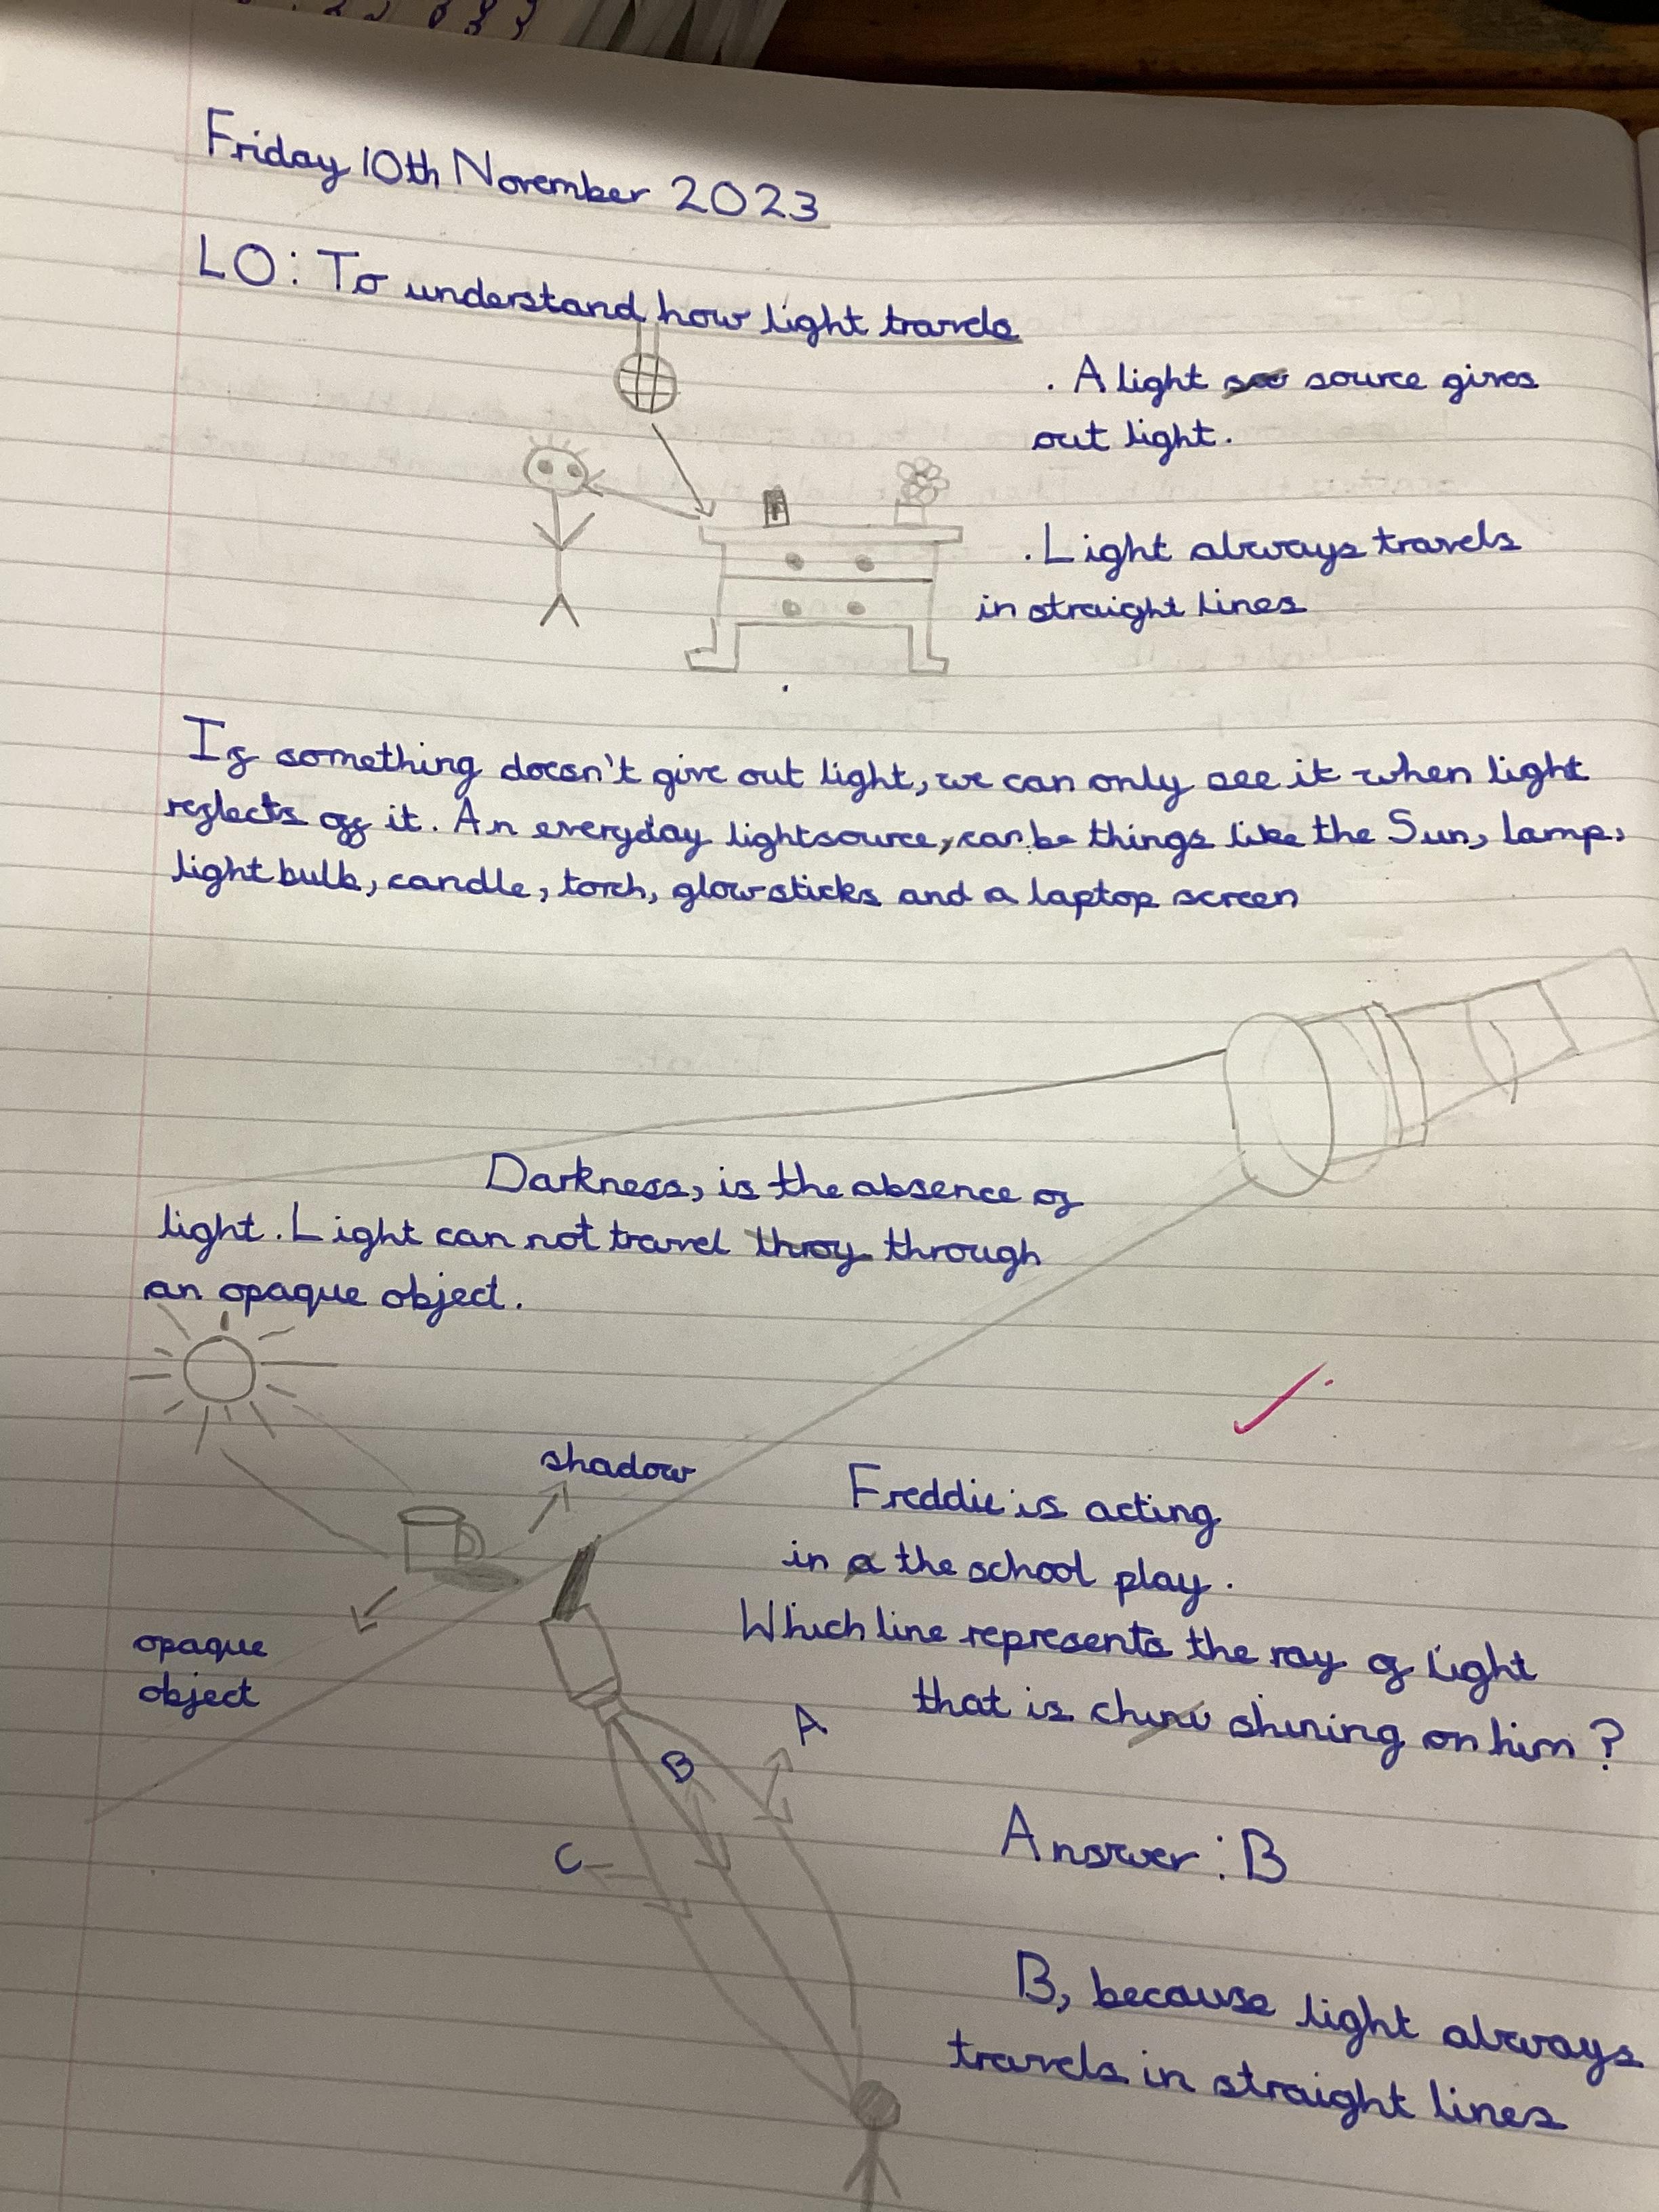 Friday 10th November 2023
LO: To understand how light travels
. A light source gives
out light.
. Light always travels
in straight lines
If something doesn't give out light, we can only see it when light
reflects off it. An everyday lightsource, can be things like the Sun, lamp,
light bulb, candle, torch, glowsticks and a laptop screen
Darkness, is the absence of
light. Light can not travel through
an opaque object.
shadow
opaque
object
Freddie is acting
in the school play.
Which line represents the ray of light
that is shining on him?
A
B
C
Answer: B
B, because light always
travels in straight lines